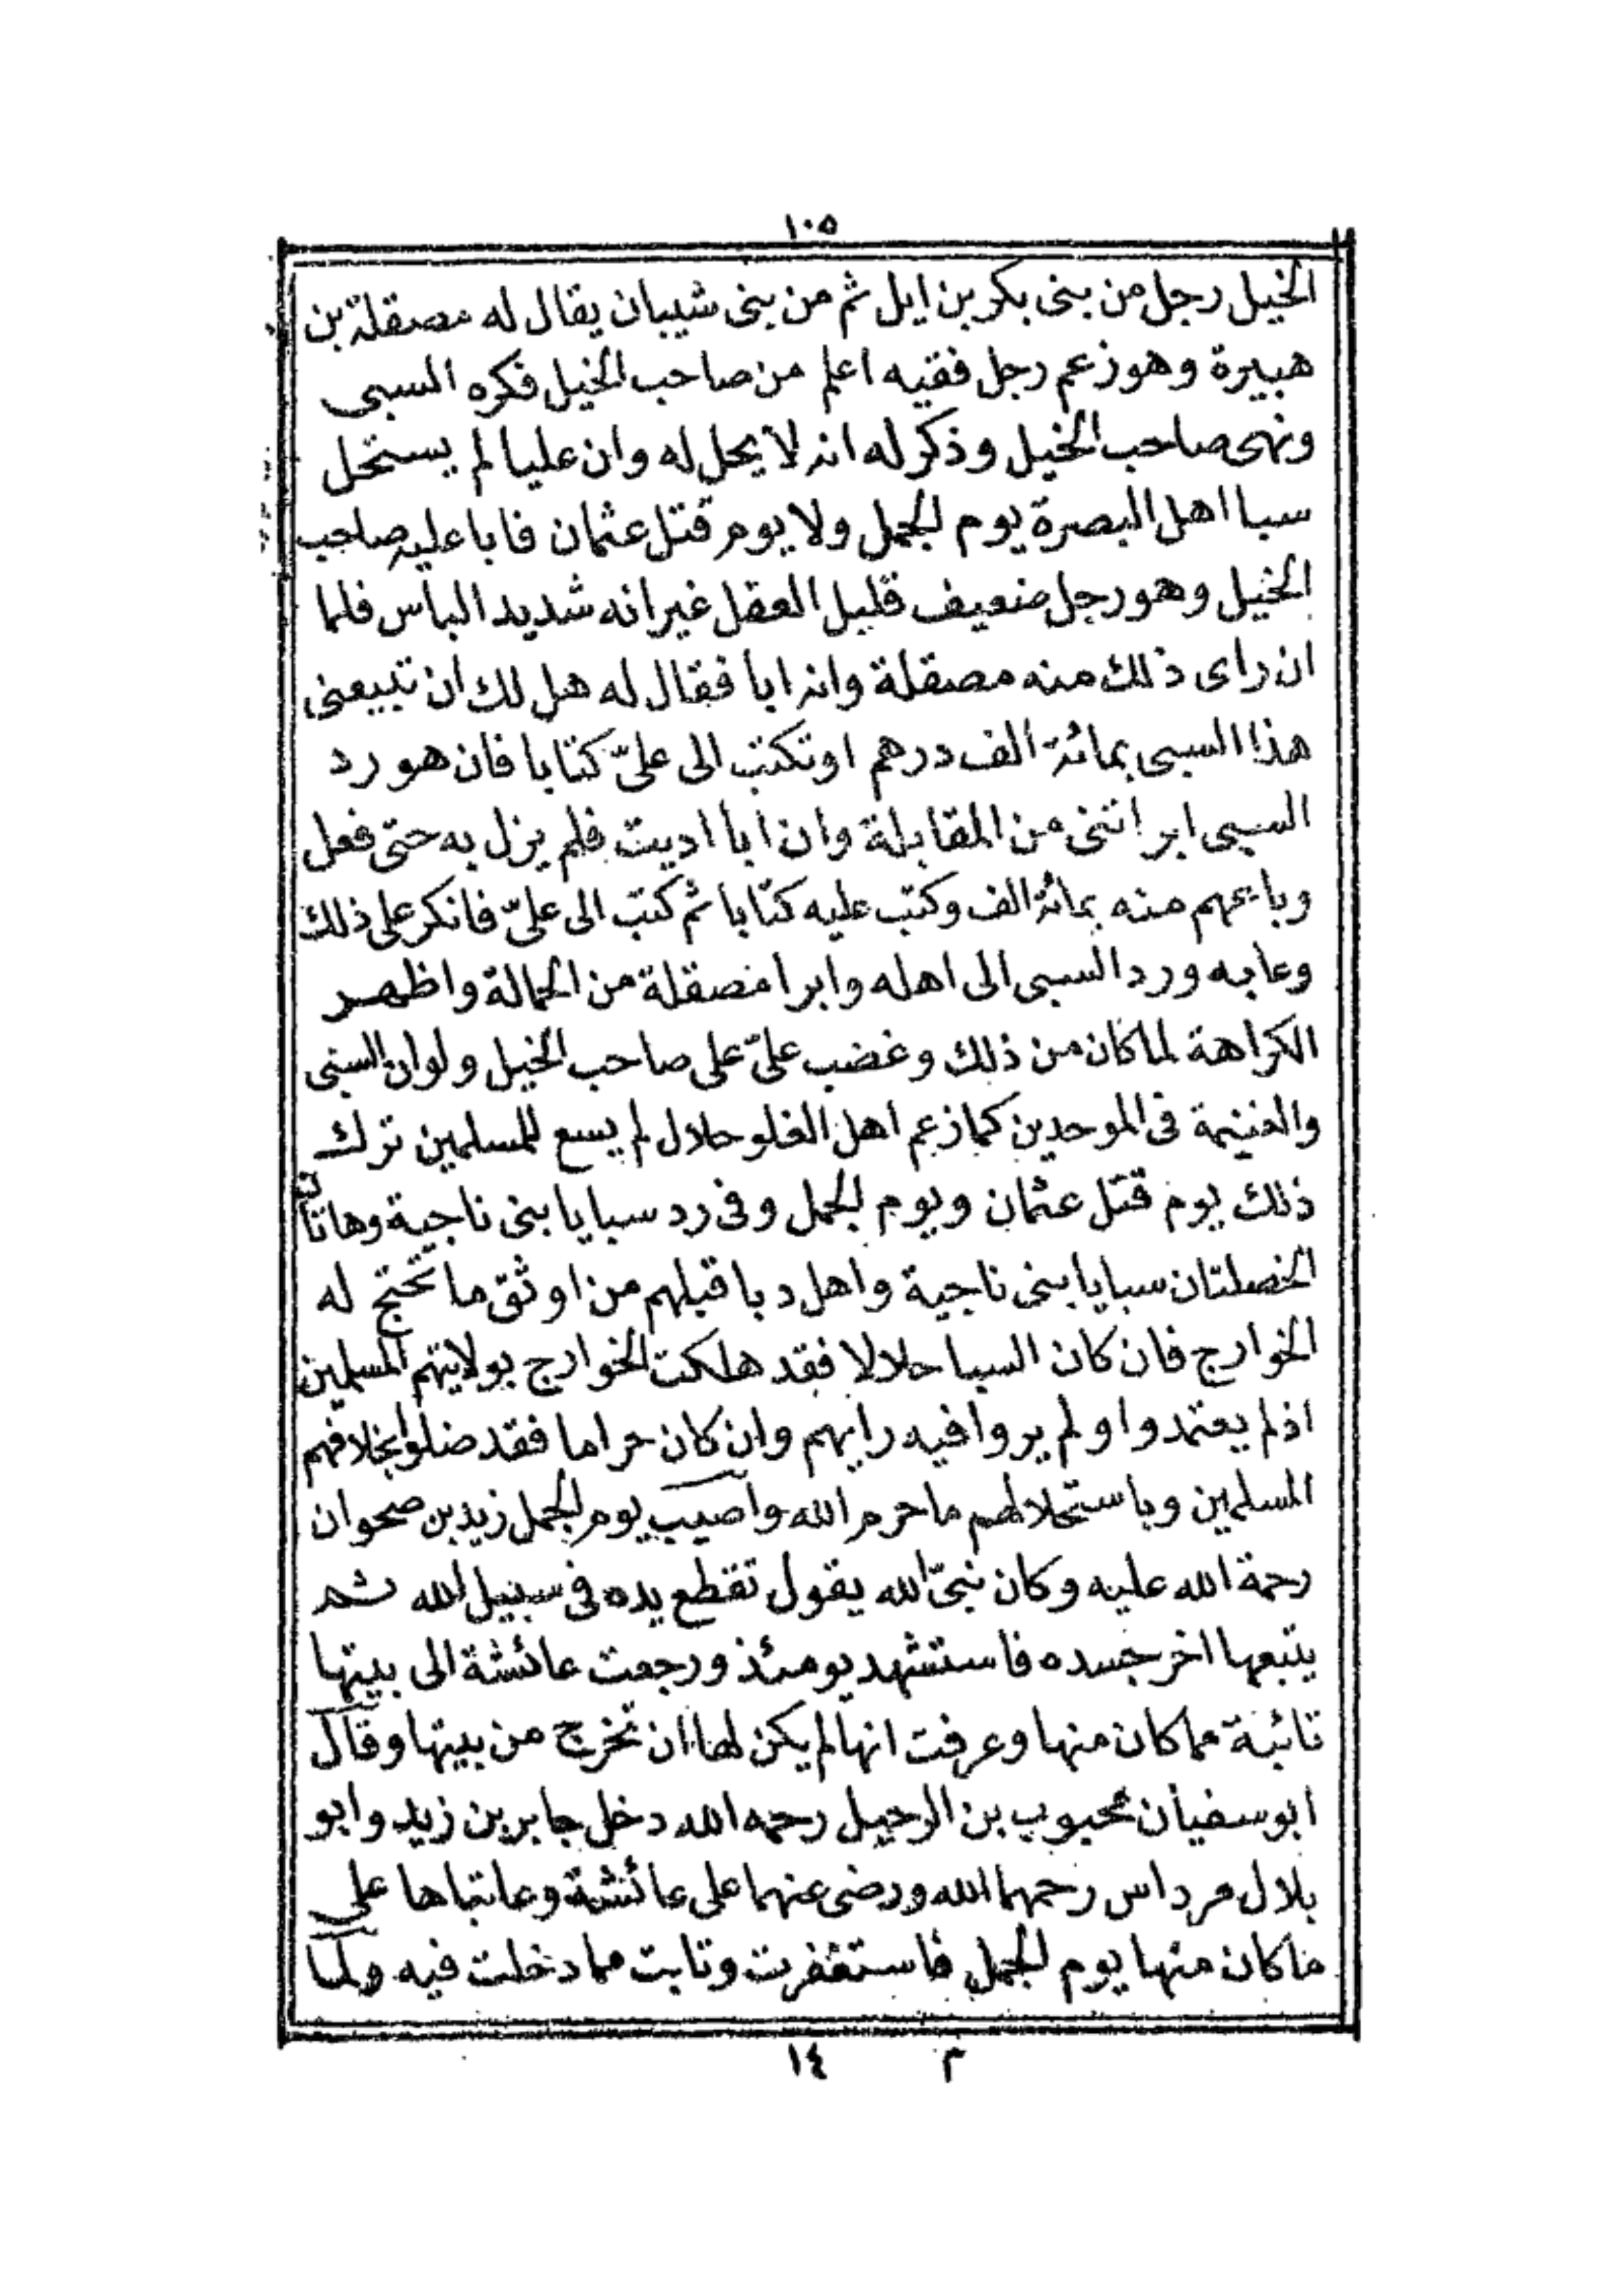 ١٠٥
الخيل رجل من بنى بكر بن ايل ثم من بنى شيبان يقال له مصقلة بن
هبيرة وهو زعم رجل فقيه اعلم من صاحب الخيل فكره السبى
ونهى صاحب الخيل وذكر له انه لا يحل له وان عليا لم يستحل
سبا اهل البصرة يوم الجمل ولا يوم قتل عثمان فابا عليه صاحب
الخيل وهو رجل ضعيف قليل العقل غير انه شديد الباس فلما
ان راى ذلك منه مصقلة وانه ابا فقال له هل لك ان تبيعنى
هذا السبى بمائة الف درهم اوتكتب الى علىّ كتابا فان هو رد
السبى ابراتنى من المقابلة وان ابا اديت فلم يزل به حتى فعل
وباعهم منه بمائة الف وكتب عليه كتابا ثم كتب الى علىّ فانكر على ذلك
وعابه ورد السبى الى اهله وابرا مصقلة من الحمالة واظهر
الكراهة لما كان من ذلك وغضب علىّ على صاحب الخيل ولو ان السبى
والغنيمة فى الموحدين كما زعم اهل الغلو حلال لم يسع للمسلمين ترك
ذلك يوم قتل عثمان ويوم الجمل وفى رد سبايا بنى ناجية وهاتان
الخصلتان سبايا بنى ناجية واهل دبا قبلهم من اوثق ما تحتج له
الخوارج فان كان السبا حلالا فقد هلكت الخوارج بولايتهم المسلمين
اذ لم يعتمدوا ولم يروا فيه رايهم وان كان حراما فقد ضلوا بخلافهم
المسلمين وباستحلالهم ما حرم الله واصيب يوم الجمل زيد بن صحوان
رحمة الله عليه وكان نبىّ الله يقول تقطع يده فى سبيل الله ثم
يتبعها اخر جسده فاستشهد يومئذ ورجعت عائشة الى بيتها
تائبة مما كان منها وعرفت انها لم يكن لها ان تخرج من بيتها وقال
ابو سفيان محبوب بن الرحيل رحمه الله دخل جابر بن زيد وابو
بلال مرداس رحمهما الله ورضى عنهما على عائشة وعاتباها على
ما كان منها يوم الجمل فاستغفرت وتابت مما دخلت فيه ولما
م ١٤